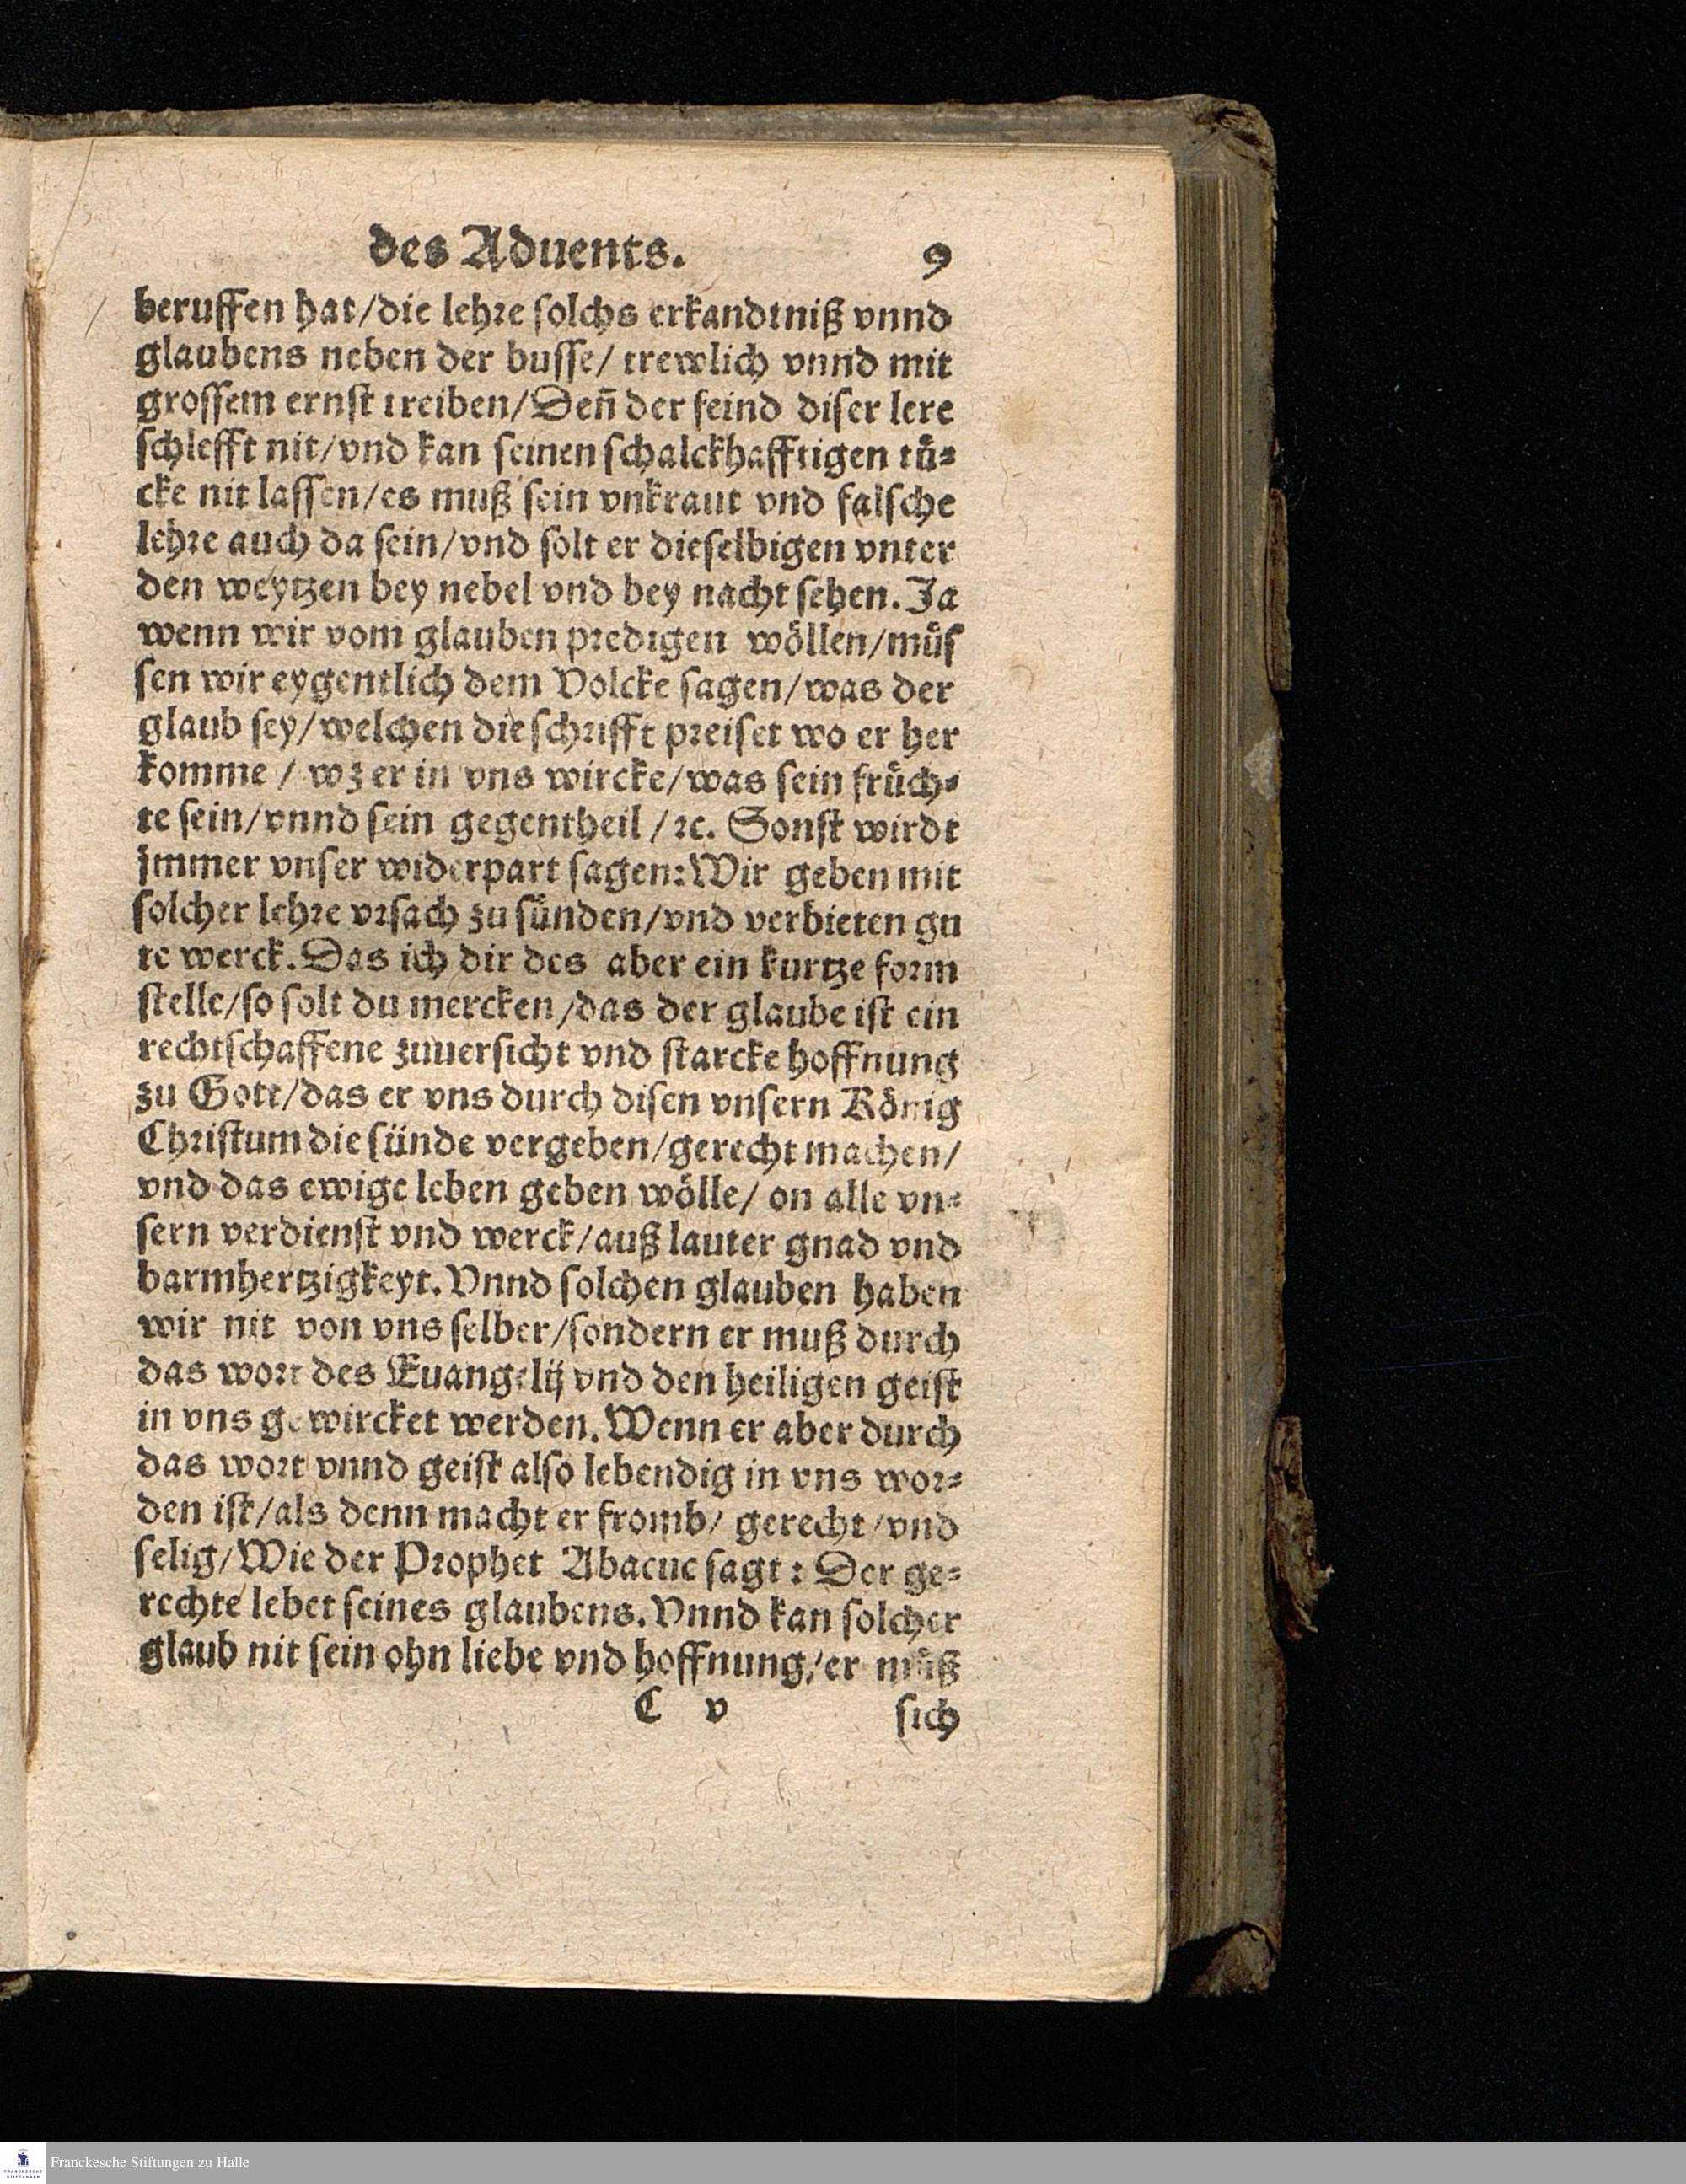 des Aduents. 9
beruffen hat/die lehre solchs erkandtniß vnnd
glaubens neben der busse/ trewlich vnnd mit
grossem ernst treiben/Deñ der feind diser lere
schlefft nit/vnd kan seinen schalckhafftigen tuͤ-
cke nit lassen/es muß sein vnkraut vnd falsche
lehre auch da sein/vnd solt er dieselbigen vnter
den weytzen bey nebel vnd bey nacht sehen. Ja
wenn wir vom glauben predigen woͤllen/muͤs
sen wir eygentlich dem Volcke sagen/was der
glaub sey/welchen die schrifft preiset wo er her
komme / wz er in vns wircke/was sein fruͤch-
te sein/vnnd sein gegentheil /ꝛc. Sonst wirdt
jmmer vnser widerpart sagen: Wir geben mit
solcher lehre vrsach zu suͤnden/vnd verbieten gu
te werck. Das ich dir des aber ein kurtze form
stelle/so solt du mercken/das der glaube ist ein
rechtschaffene zuuersicht vnd starcke hoffnung
zu Gott/das er vns durch disen vnsern Koͤnig
Christum die suͤnde vergeben/gerecht machen/
vnd das ewige leben geben woͤlle/ on alle vn-
sern verdienst vnd werck/auß lauter gnad vnd
barmhertzigkeyt. Vnnd solchen glauben haben
wir nit von vns selber/sondern er muß durch
das wort des Euangelij vnd den heiligen geist
in vns gewircket werden. Wenn er aber durch
das wort vnnd geist also lebendig in vns wor-
den ist/als denn macht er fromb/ gerecht/vnd
selig/Wie der Prophet Abacuc sagt: Der ge-
rechte lebet seines glaubens. Vnnd kan solcher
glaub nit sein ohn liebe vnd hoffnung/er muͤß
C v sich
Franckesche Stiftungen zu Halle
FRANCKESCHE
STIFTUNGEN